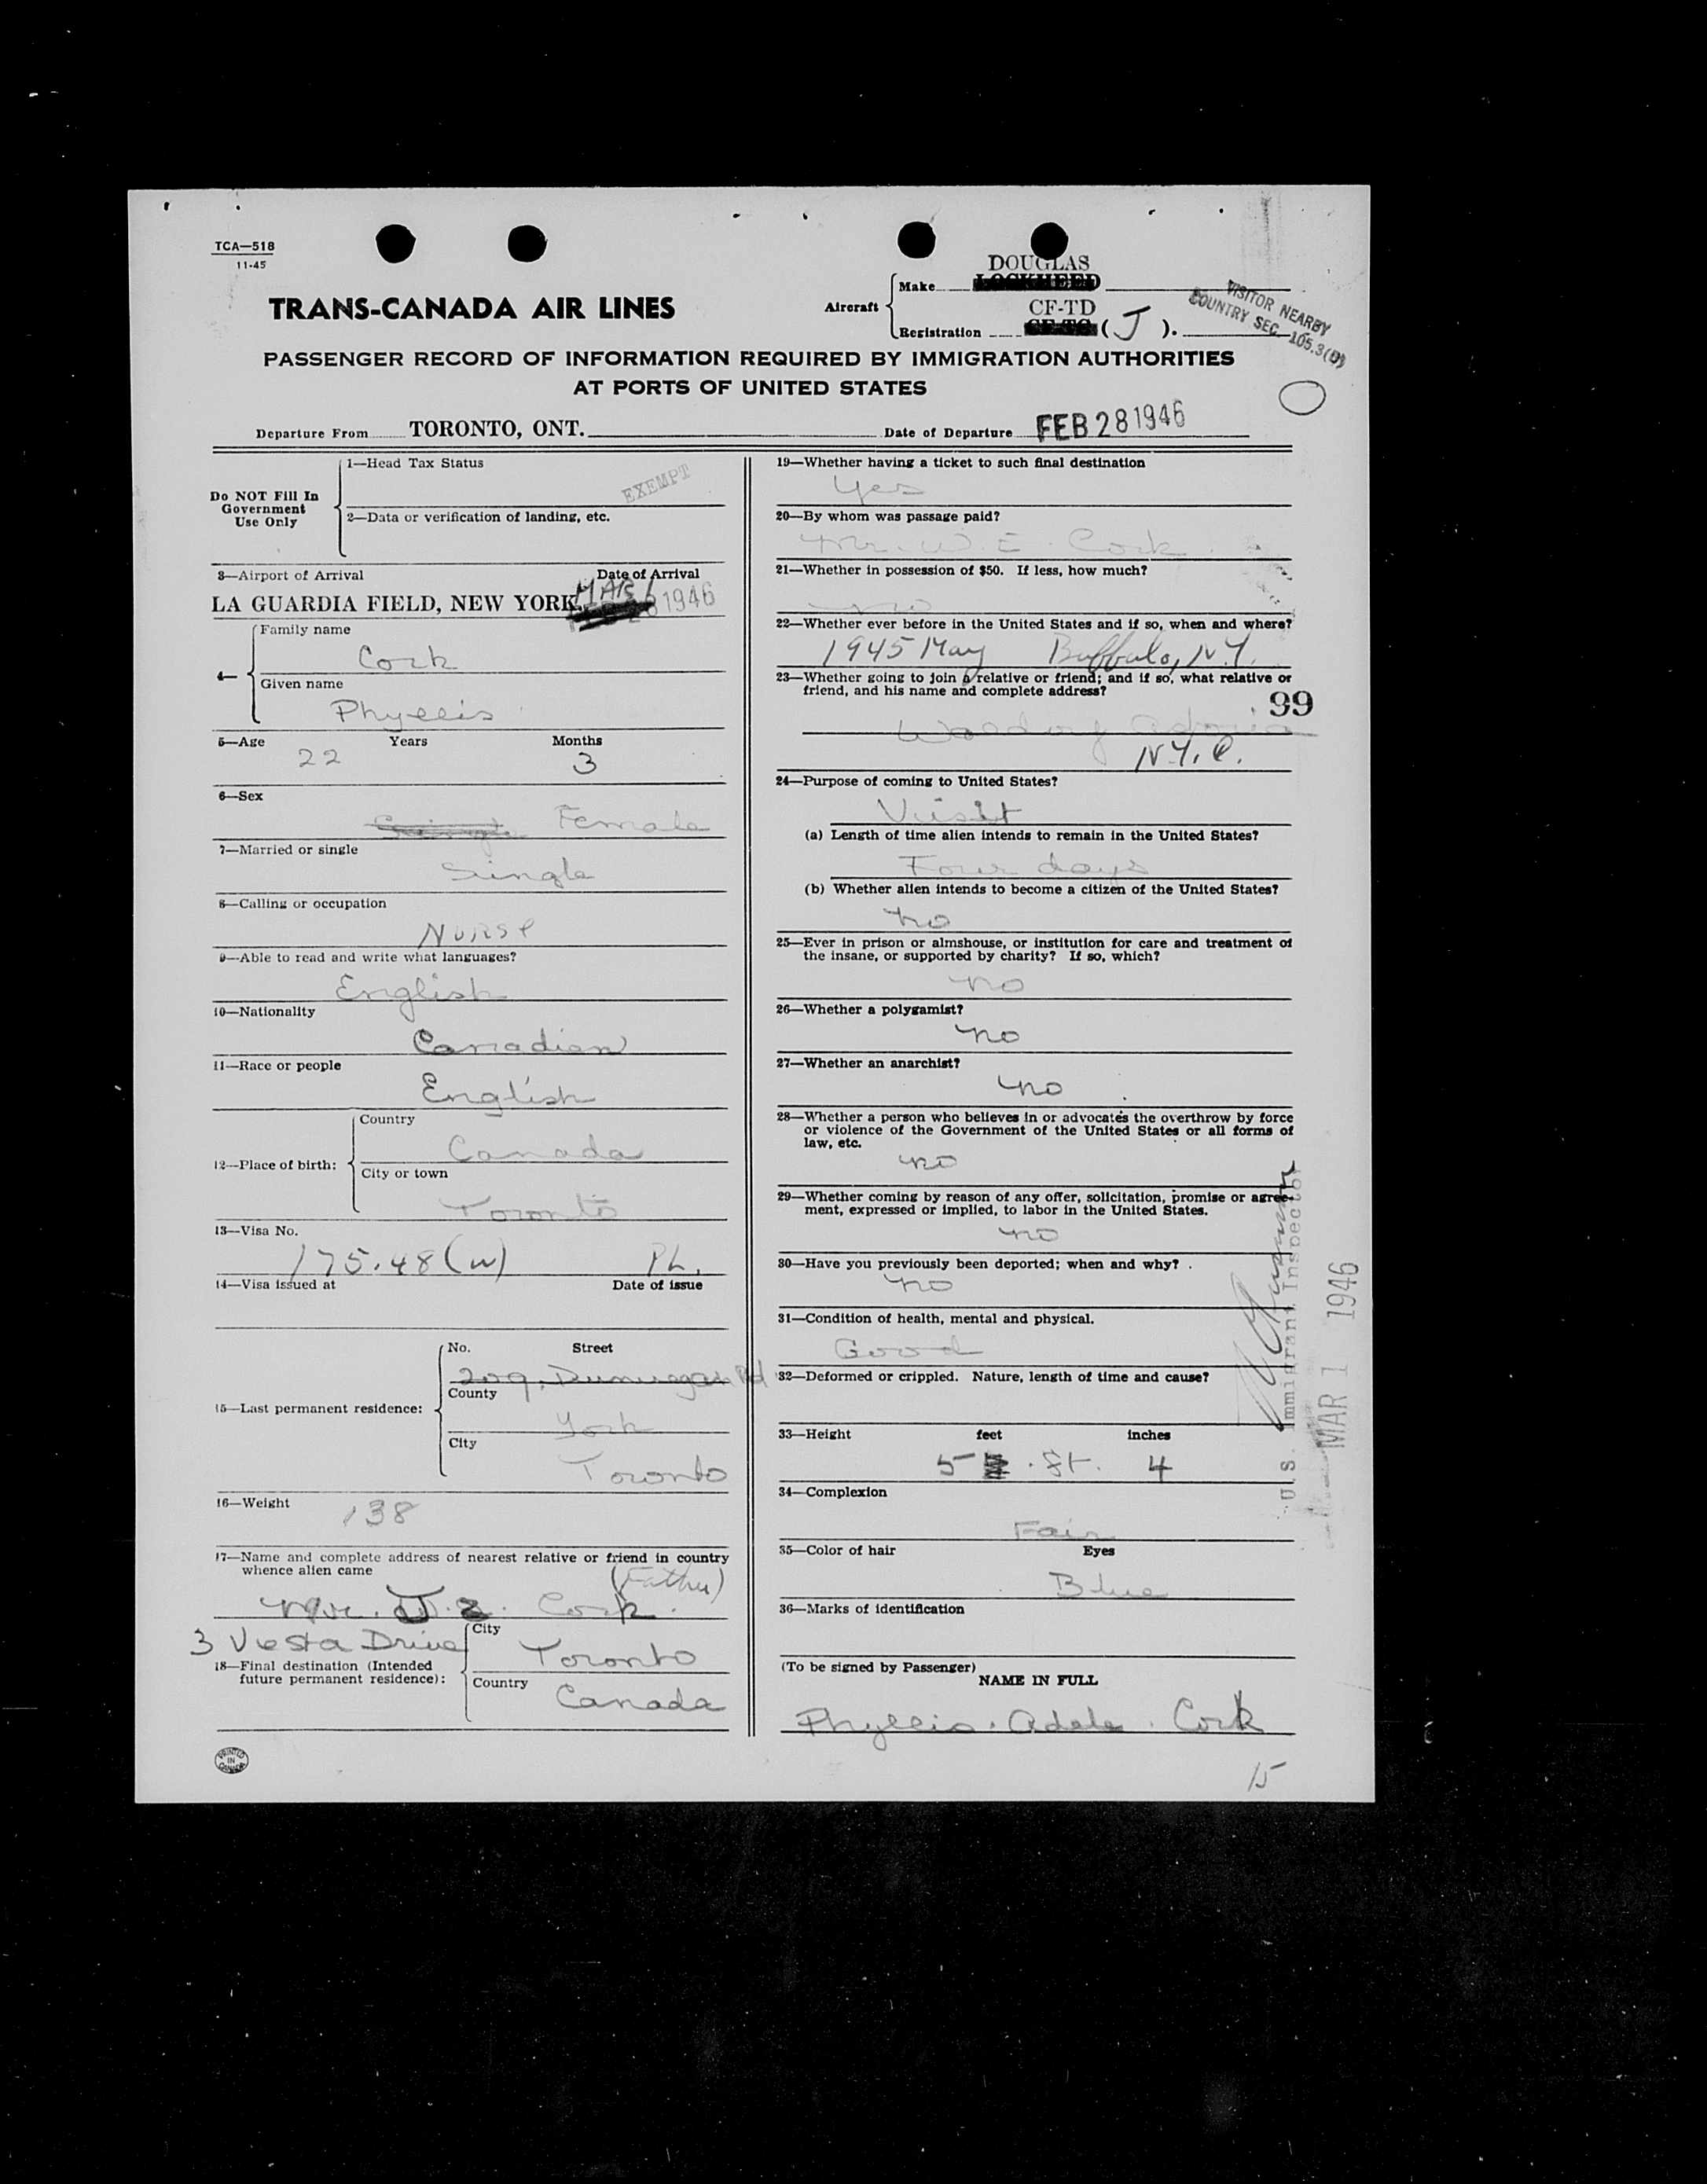 TCA—518
11-45
TRANS-CANADA AIR LINES
Aircraft
Make
DOUGLAS
LOCKHEED
Registration
CF-TD
(J).
VISITOR NEARBY
COUNTRY SEC. 105.3(D)
PASSENGER RECORD OF INFORMATION REQUIRED BY IMMIGRATION AUTHORITIES
AT PORTS OF UNITED STATES
Departure From TORONTO, ONT. Date of Departure FEB 28 1946
Do NOT Fill In
Government
Use Only
1—Head Tax Status
EXEMPT
2—Data or verification of landing, etc.
3—Airport of Arrival Date of Arrival
LA GUARDIA FIELD, NEW YORK. MAR 1 1946
4—
Family name
Cork
Given name
Phyllis
5—Age Years Months
22 3
6—Sex
Single Female
7—Married or single
Single
8—Calling or occupation
Nurse
9—Able to read and write what languages?
English
10—Nationality
Canadian
11—Race or people
English
12—Place of birth:
Country
Canada
City or town
Toronto
13—Visa No.
175.48(w) PL.
14—Visa issued at Date of issue
15—Last permanent residence:
No. Street
209. Dunvegan Rd
County
York
City
Toronto
16—Weight
138
17—Name and complete address of nearest relative or friend in country
whence alien came
(Father)
Mr. Cork.
3 Vesta Drive
18—Final destination (Intended
future permanent residence):
City
Toronto
Country
Canada
PRINTED
IN
CANADA
19—Whether having a ticket to such final destination
Yes
20—By whom was passage paid?
Mr. W. E. Cork
21—Whether in possession of $50. If less, how much?
no
22—Whether ever before in the United States and if so, when and where?
1945 May Buffalo, N.Y.
23—Whether going to join a relative or friend; and if so, what relative or
friend, and his name and complete address?
99
Waldorf Astoria
N.Y.C.
24—Purpose of coming to United States?
Visit
(a) Length of time alien intends to remain in the United States?
Four days
(b) Whether alien intends to become a citizen of the United States?
no
25—Ever in prison or almshouse, or institution for care and treatment of
the insane, or supported by charity? If so, which?
no
26—Whether a polygamist?
no
27—Whether an anarchist?
no
28—Whether a person who believes in or advocates the overthrow by force
or violence of the Government of the United States or all forms of
law, etc.
no
29—Whether coming by reason of any offer, solicitation, promise or agree-
ment, expressed or implied, to labor in the United States.
no
30—Have you previously been deported; when and why?
no
31—Condition of health, mental and physical.
Good
32—Deformed or crippled. Nature, length of time and cause?
33—Height feet inches
5 ft. 4
34—Complexion
Fair
35—Color of hair Eyes
Blue
36—Marks of identification
(To be signed by Passenger)
NAME IN FULL
Phyllis. Adele. Cork
U.S. Immigrant Inspector
MAR 1 1946
15